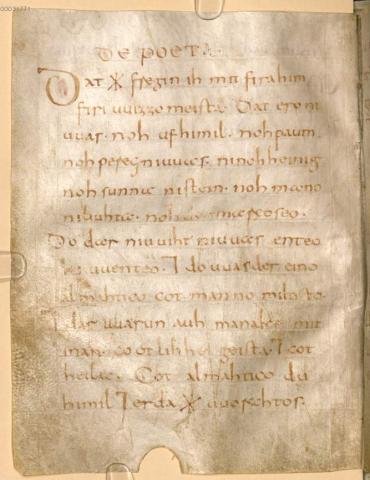 DE POETA
Dat ᚼ fregin ih mit firahim
firi uuizzo meista. Dat ero ni
uuas. noh ufhimil. noh paum
noh pereg ni uuas. ni nohheinig
noh sunna ni stein. noh mano
ni liuhta. noh der mareo seo.
Do dar niuuiht ni uuas enteo
ni uuenteo. ⁊ do uuas der eino
almahtico cot manno miltisto.
⁊ dar uuarun auh manake mit
inan. cootlihhe geista. ⁊ cot
heilac. Cot almahtico du
himil ⁊ erda ᚼ uuorahtos.